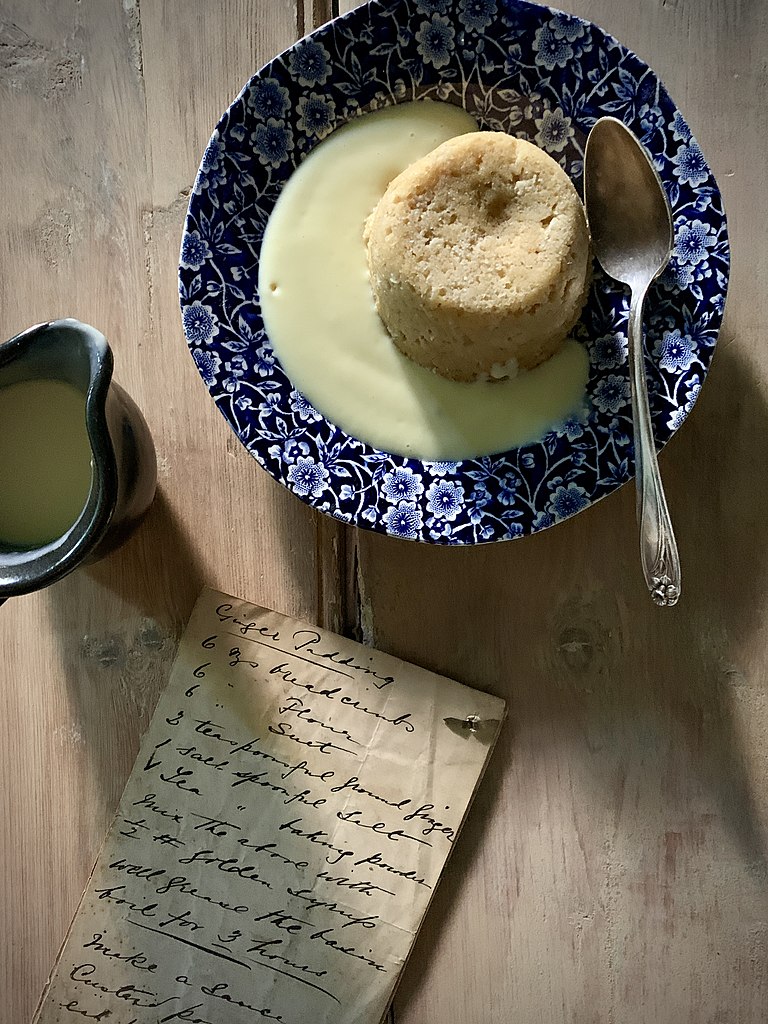 Ginger Pudding
6 ozs breadcrumbs
6 " Flour
6 " Suet
3 teaspoonful ground ginger
1 salt spoonful Salt
1 Tea " baking powder
Mix the above with
½ # golden syrup
well grease the basin
boil for 3 hours
Make a Sauce
Custard